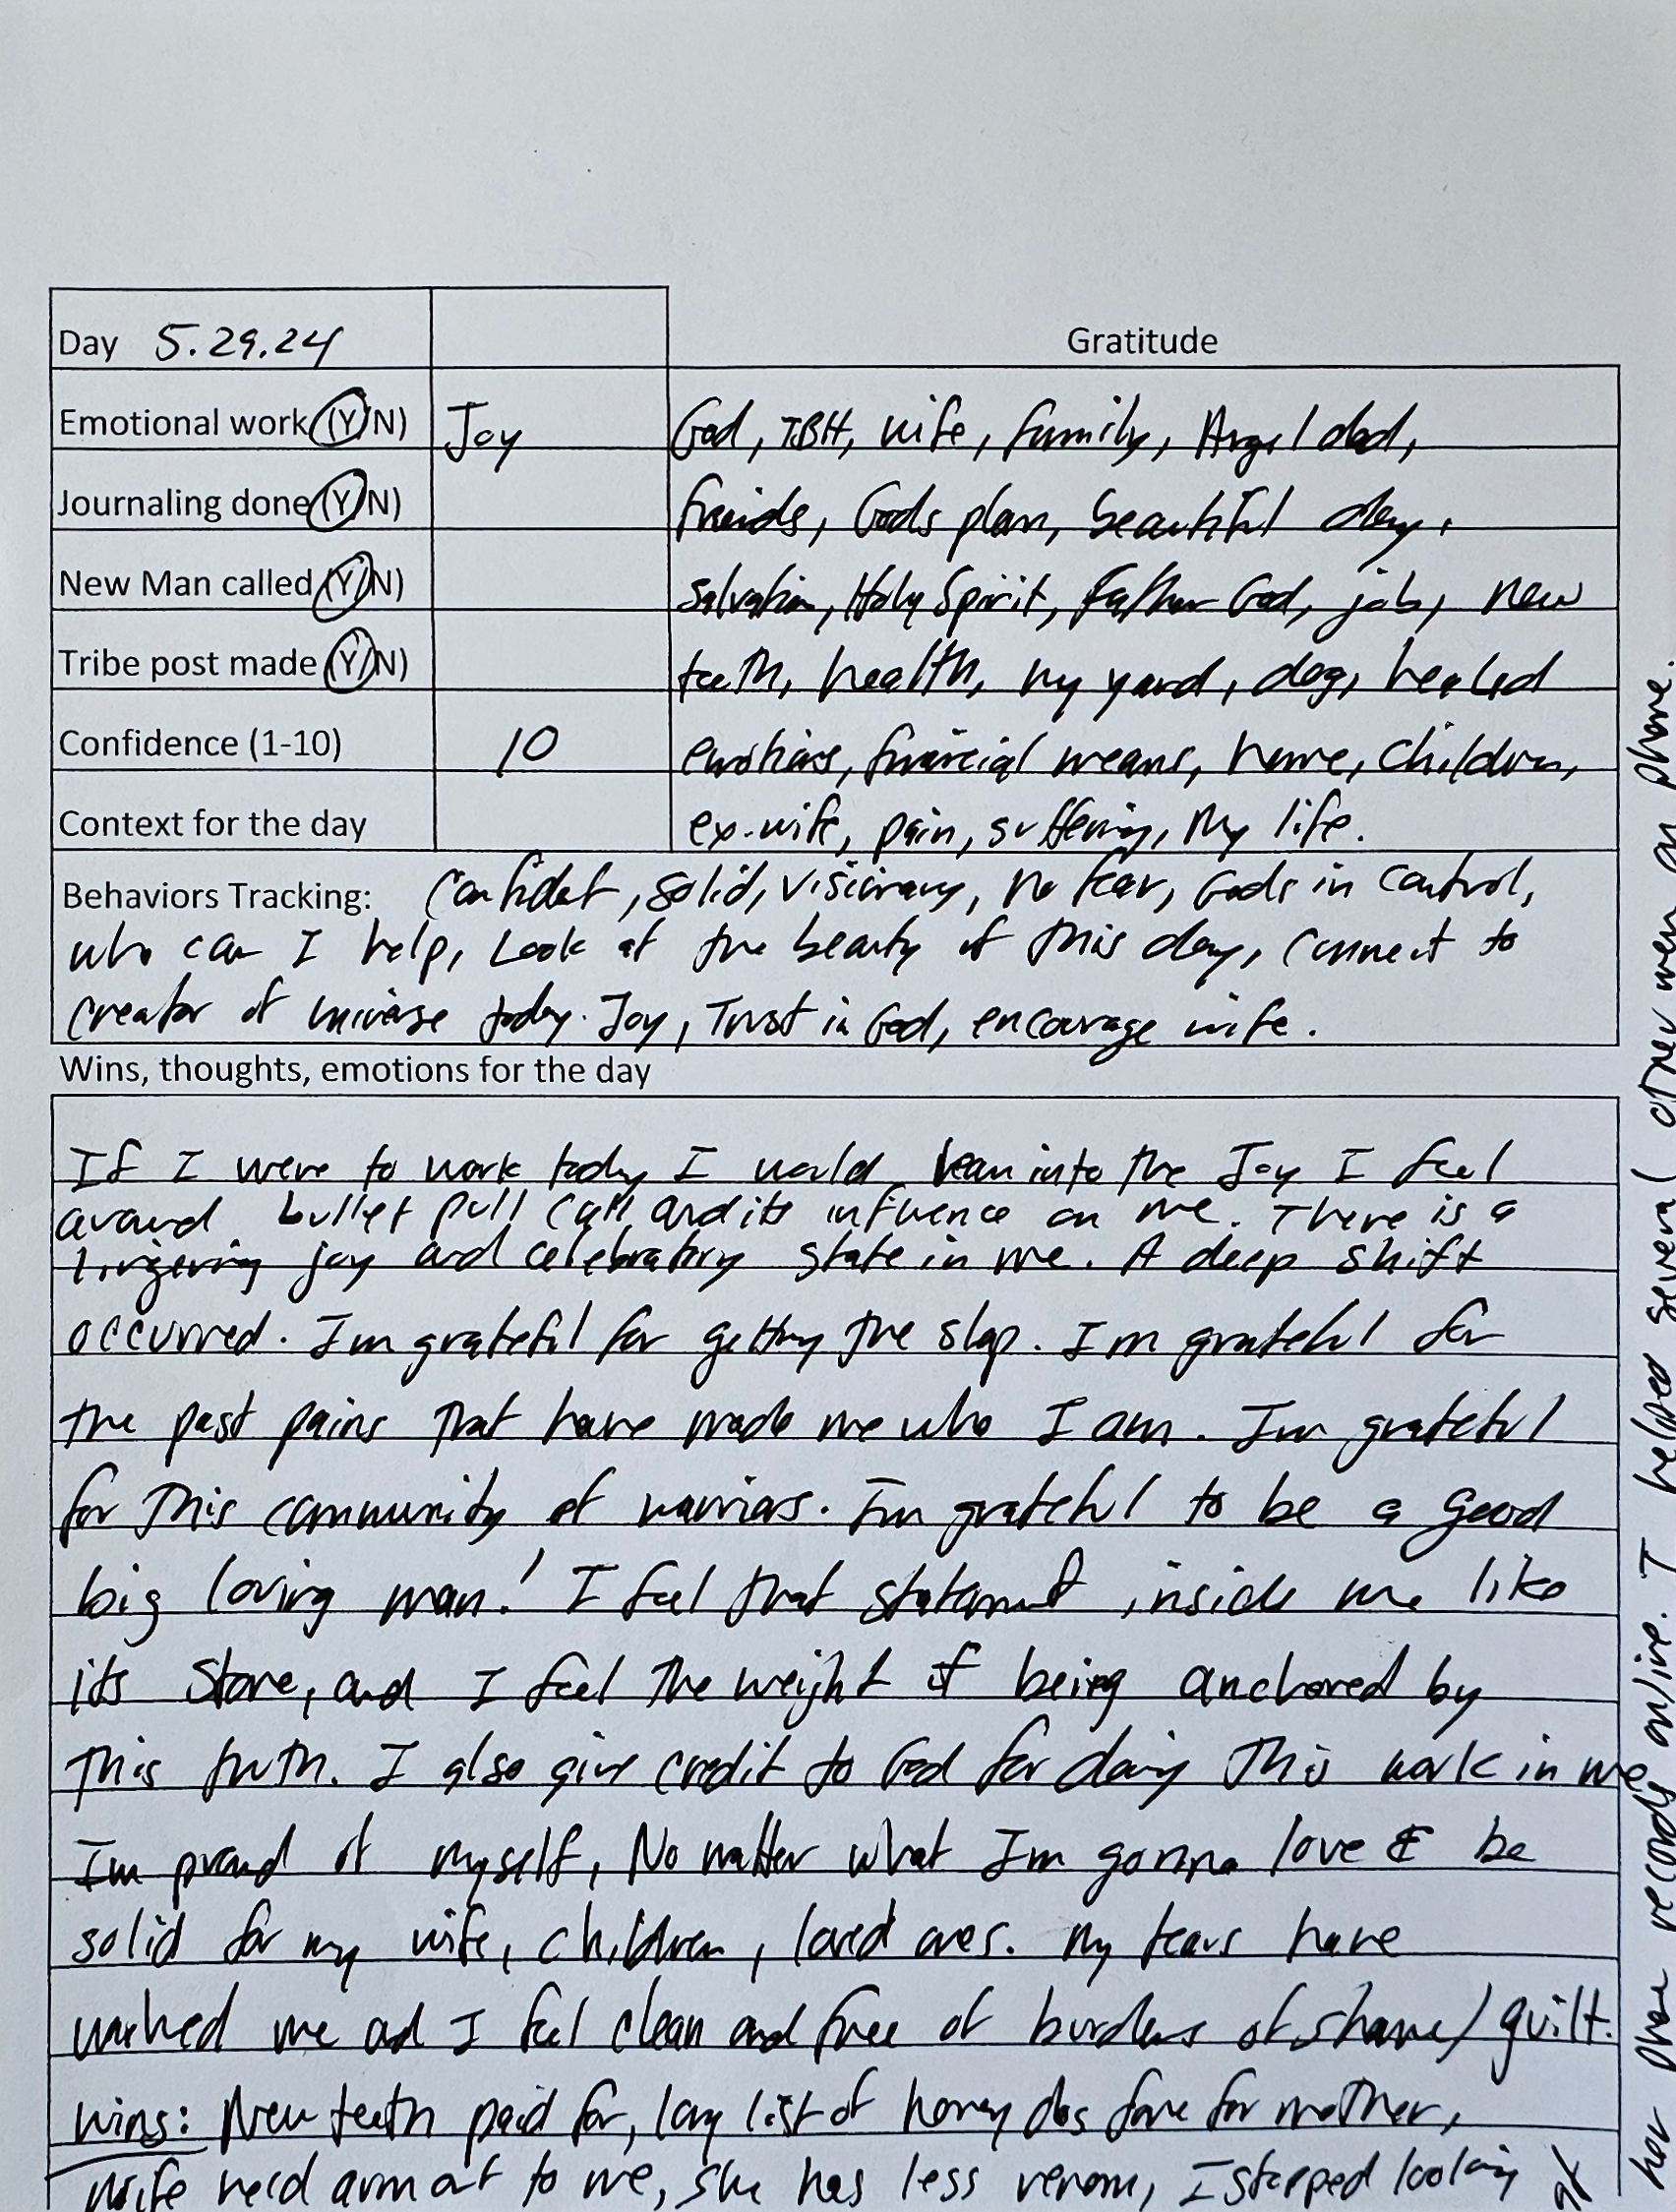 Day 5.29.24
Gratitude
Emotional work (Y/N) Joy
God, TBH, wife, family, Angel dad,
Journaling done (Y/N)
friends, Gods plan, beautiful day,
New Man called (Y/N)
Salvation, Holy Spirit, Father God, job, new
Tribe post made (Y/N)
teeth, health, my yard, dog, healed
Confidence (1-10) 10
emotions, financial means, home, children,
Context for the day
ex-wife, pain, suffering, My life.
Behaviors Tracking: Confidet, solid, visionary, no fear, Gods in control,
who can I help, Look at the beauty of this day, connect to
creator of universe today. Joy, Trust in God, encourage wife.
Wins, thoughts, emotions for the day
If I were to work today I would lean into the Joy I feel
around bullet pull call and its influence on me. There is a
lingering joy and celebratory state in me. A deep shift
occurred. Im grateful for getting the slap. Im grateful for
the past pains that have made me who I am. Im grateful
for this community of warriors. Im grateful to be a good
big loving man! I feel that statement inside me like
its stone, and I feel the weight of being anchored by
this truth. I also give credit to God for doing this work in me
Im proud of myself, No matter what Im gonna love & be
solid for my wife, children, loved ones. My tears have
washed me and I feel clean and free of burdens of shame/guilt.
Wins: New teeth paid for, long list of honey dos done for mother,
Wife held arm out to me, she has less venom, I stopped looking
at her phone records online. I helped several other men on phone.